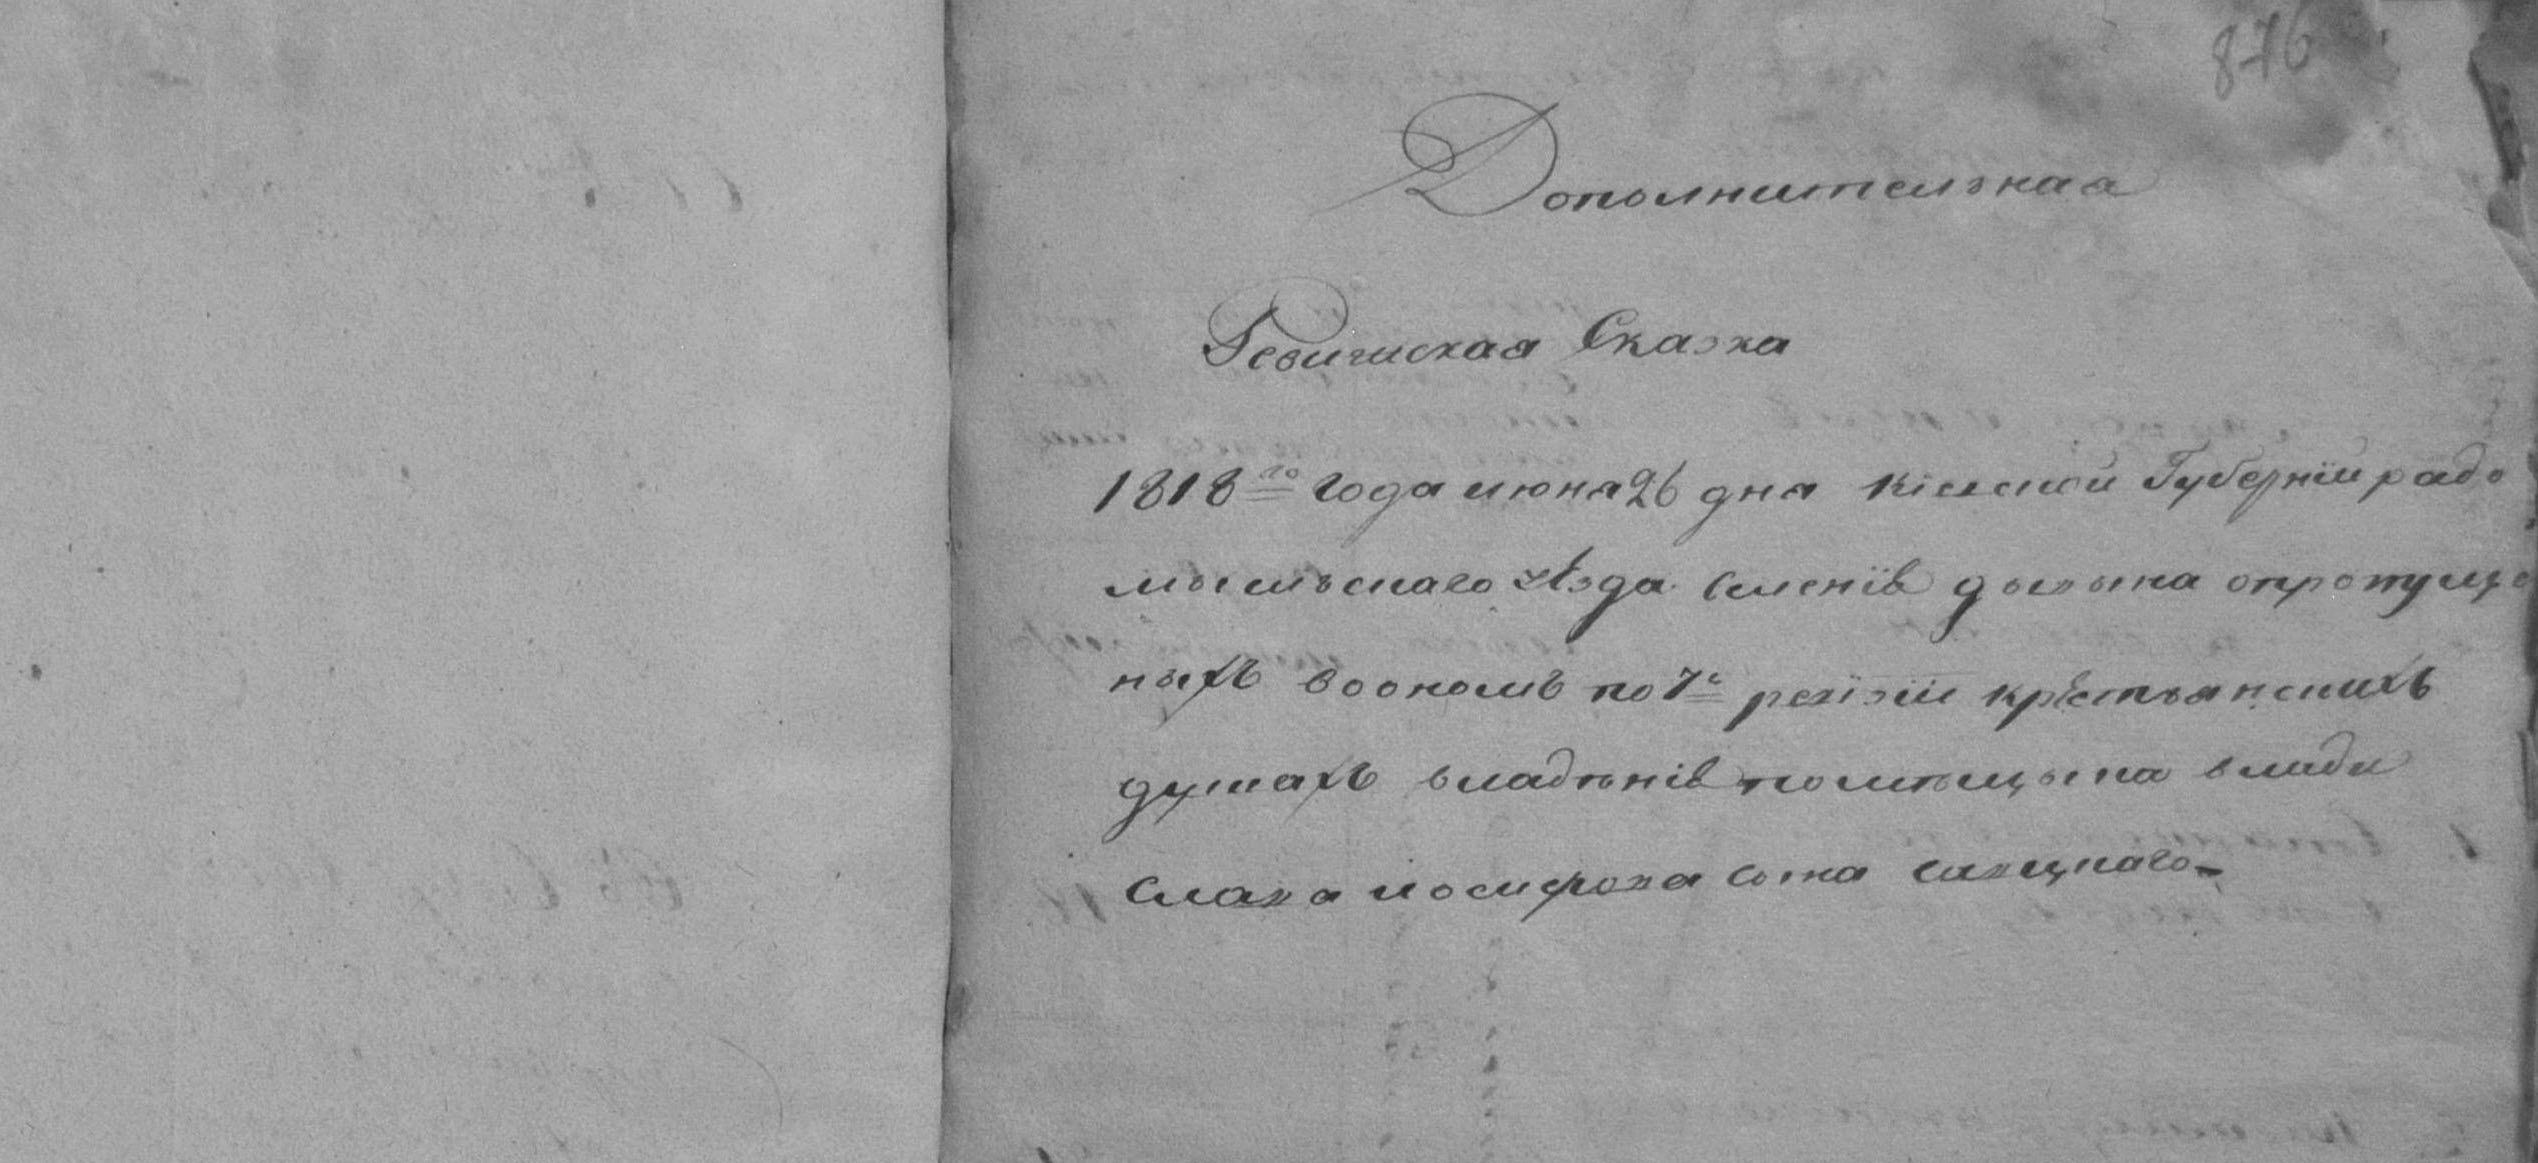 876
Дополнительная
Ревизская Сказка
1818го года июня 26 дня кіевской Губерніи радо
мысльскаго уѣзда селенія дывына опропуще
ныхъ воономъ по 7й ревізіи крѣстьянскихъ
душахъ владѣнія помѣщыка влади
слава иосифова сына